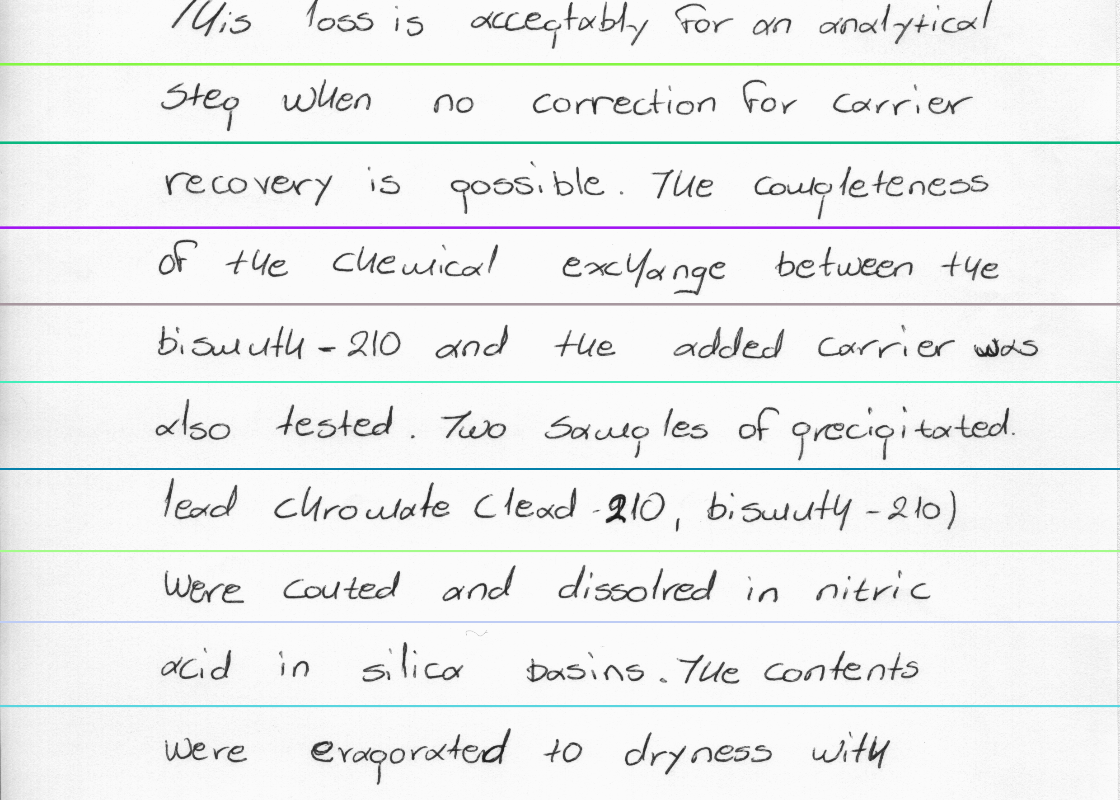 This loss is acceptably for an analytical
step when no correction for carrier
recovery is possible. The completeness
of the chemical exchange between the
bismuth-210 and the added carrier was
also tested. Two samples of precipitated.
lead chromate (lead-210, bismuth-210)
were couted and dissolved in nitric
acid in silica basins. The contents
were evaporated to dryness with